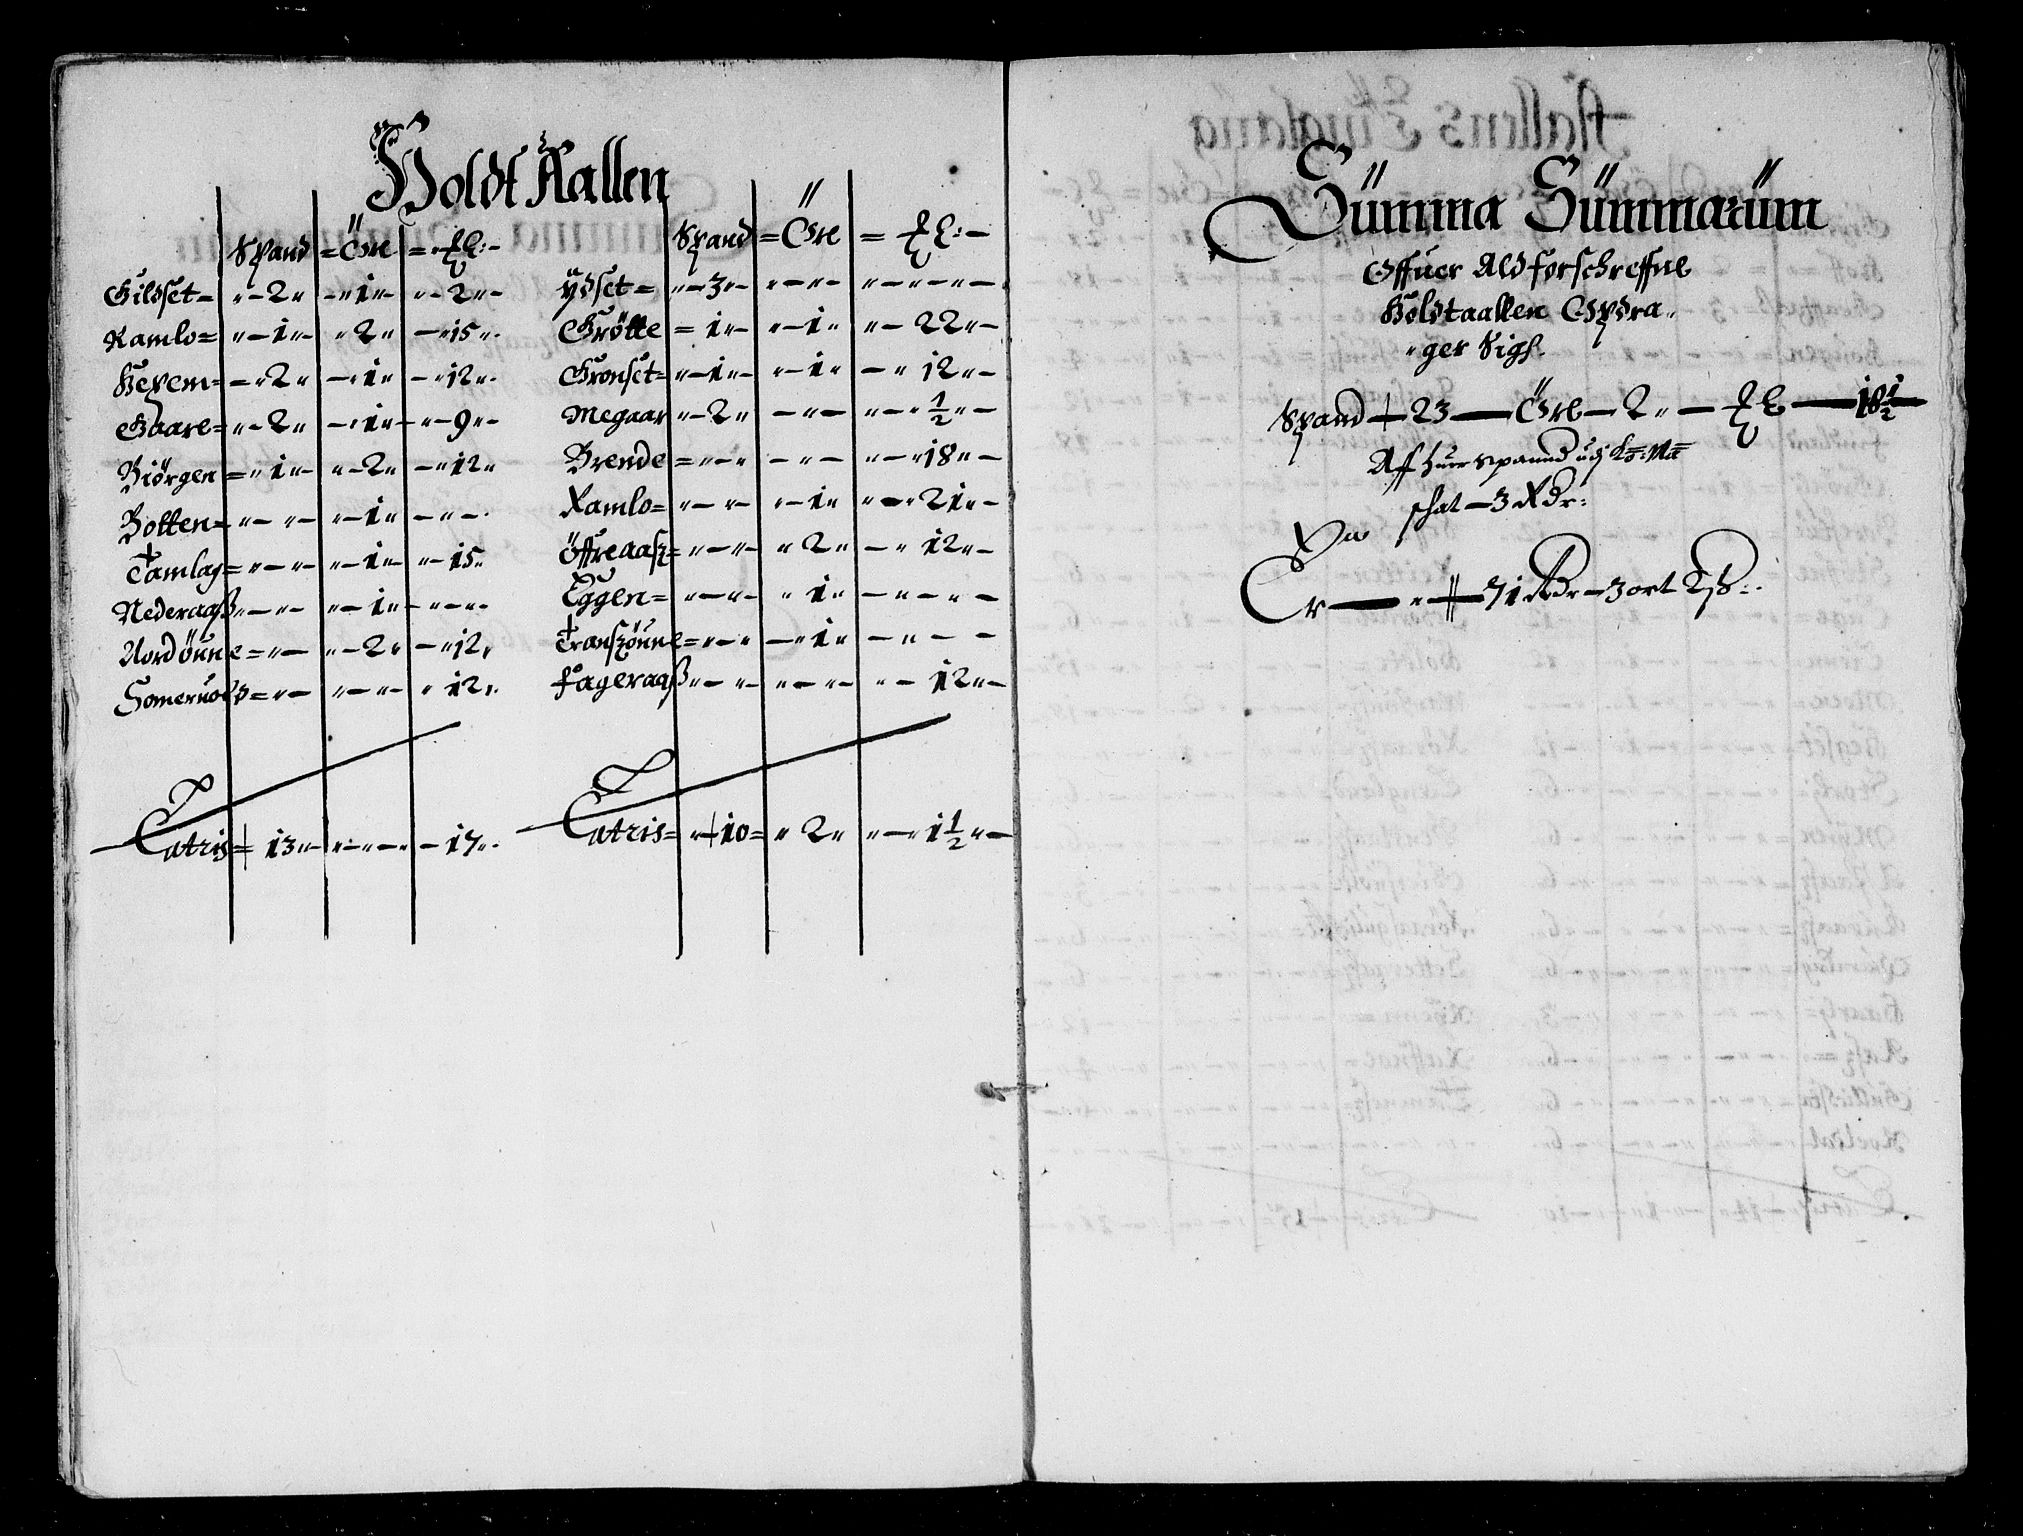 Holdt Aallen
Spand = Öre = ꝉꝉ:
Gildset = 2 1 2
Ramlo = 1 2 15
Hexem = 2 1 12
Gaare = 2 1 9
Biörgen = 1 2 12
Botten = 1
Tamlag = 1 15
Nederaaß 1
Nordöune = 2 12
Someruold = 12
Latris 13 17
Spand = Öre =
Ydset = 3
Grötte = 1 1 22
Gronset = 1 1 12
Megaar 2 ½
Brende = 18
Ramlo = 1 21
Öffreaasz = 2 12
Eggen = 1
Transzöune = 1
Fageraaß 12
Latris = 10 = 2 1½
Sümma Sümmarüm
Offuer Ald forschreffne
Holdtaallen Opdra
ger Sigh.
Spand 23 Öre 2 18½
Aff huer spannd udj Ko: Ma
schat 3 Rdr:
Er 71 Rdr 3 ort 2 ß: